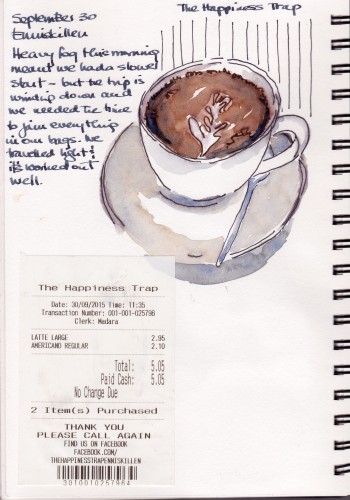 September 30
Enniskillen
The Happiness Trap
Heavy fog this morning
meant we had a slower
start - but the trip is
winding down and
we needed the time
to jam everything
in our bags. We
travelled light &
it's worked out
well.
The Happiness Trap
Date: 30/09/2015 Time: 11:35
Transaction Number: 001-001-025796
Clerk: Madara
LATTE LARGE 2.95
AMERICANO REGULAR 2.10
Total: 5.05
Paid Cash: 5.05
No Change Due
2 Item(s) Purchased
THANK YOU
PLEASE CALL AGAIN
FIND US ON FACEBOOK
FACEBOOK.COM/
THEHAPPINESSTRAPENNISKILLEN
3010010257964